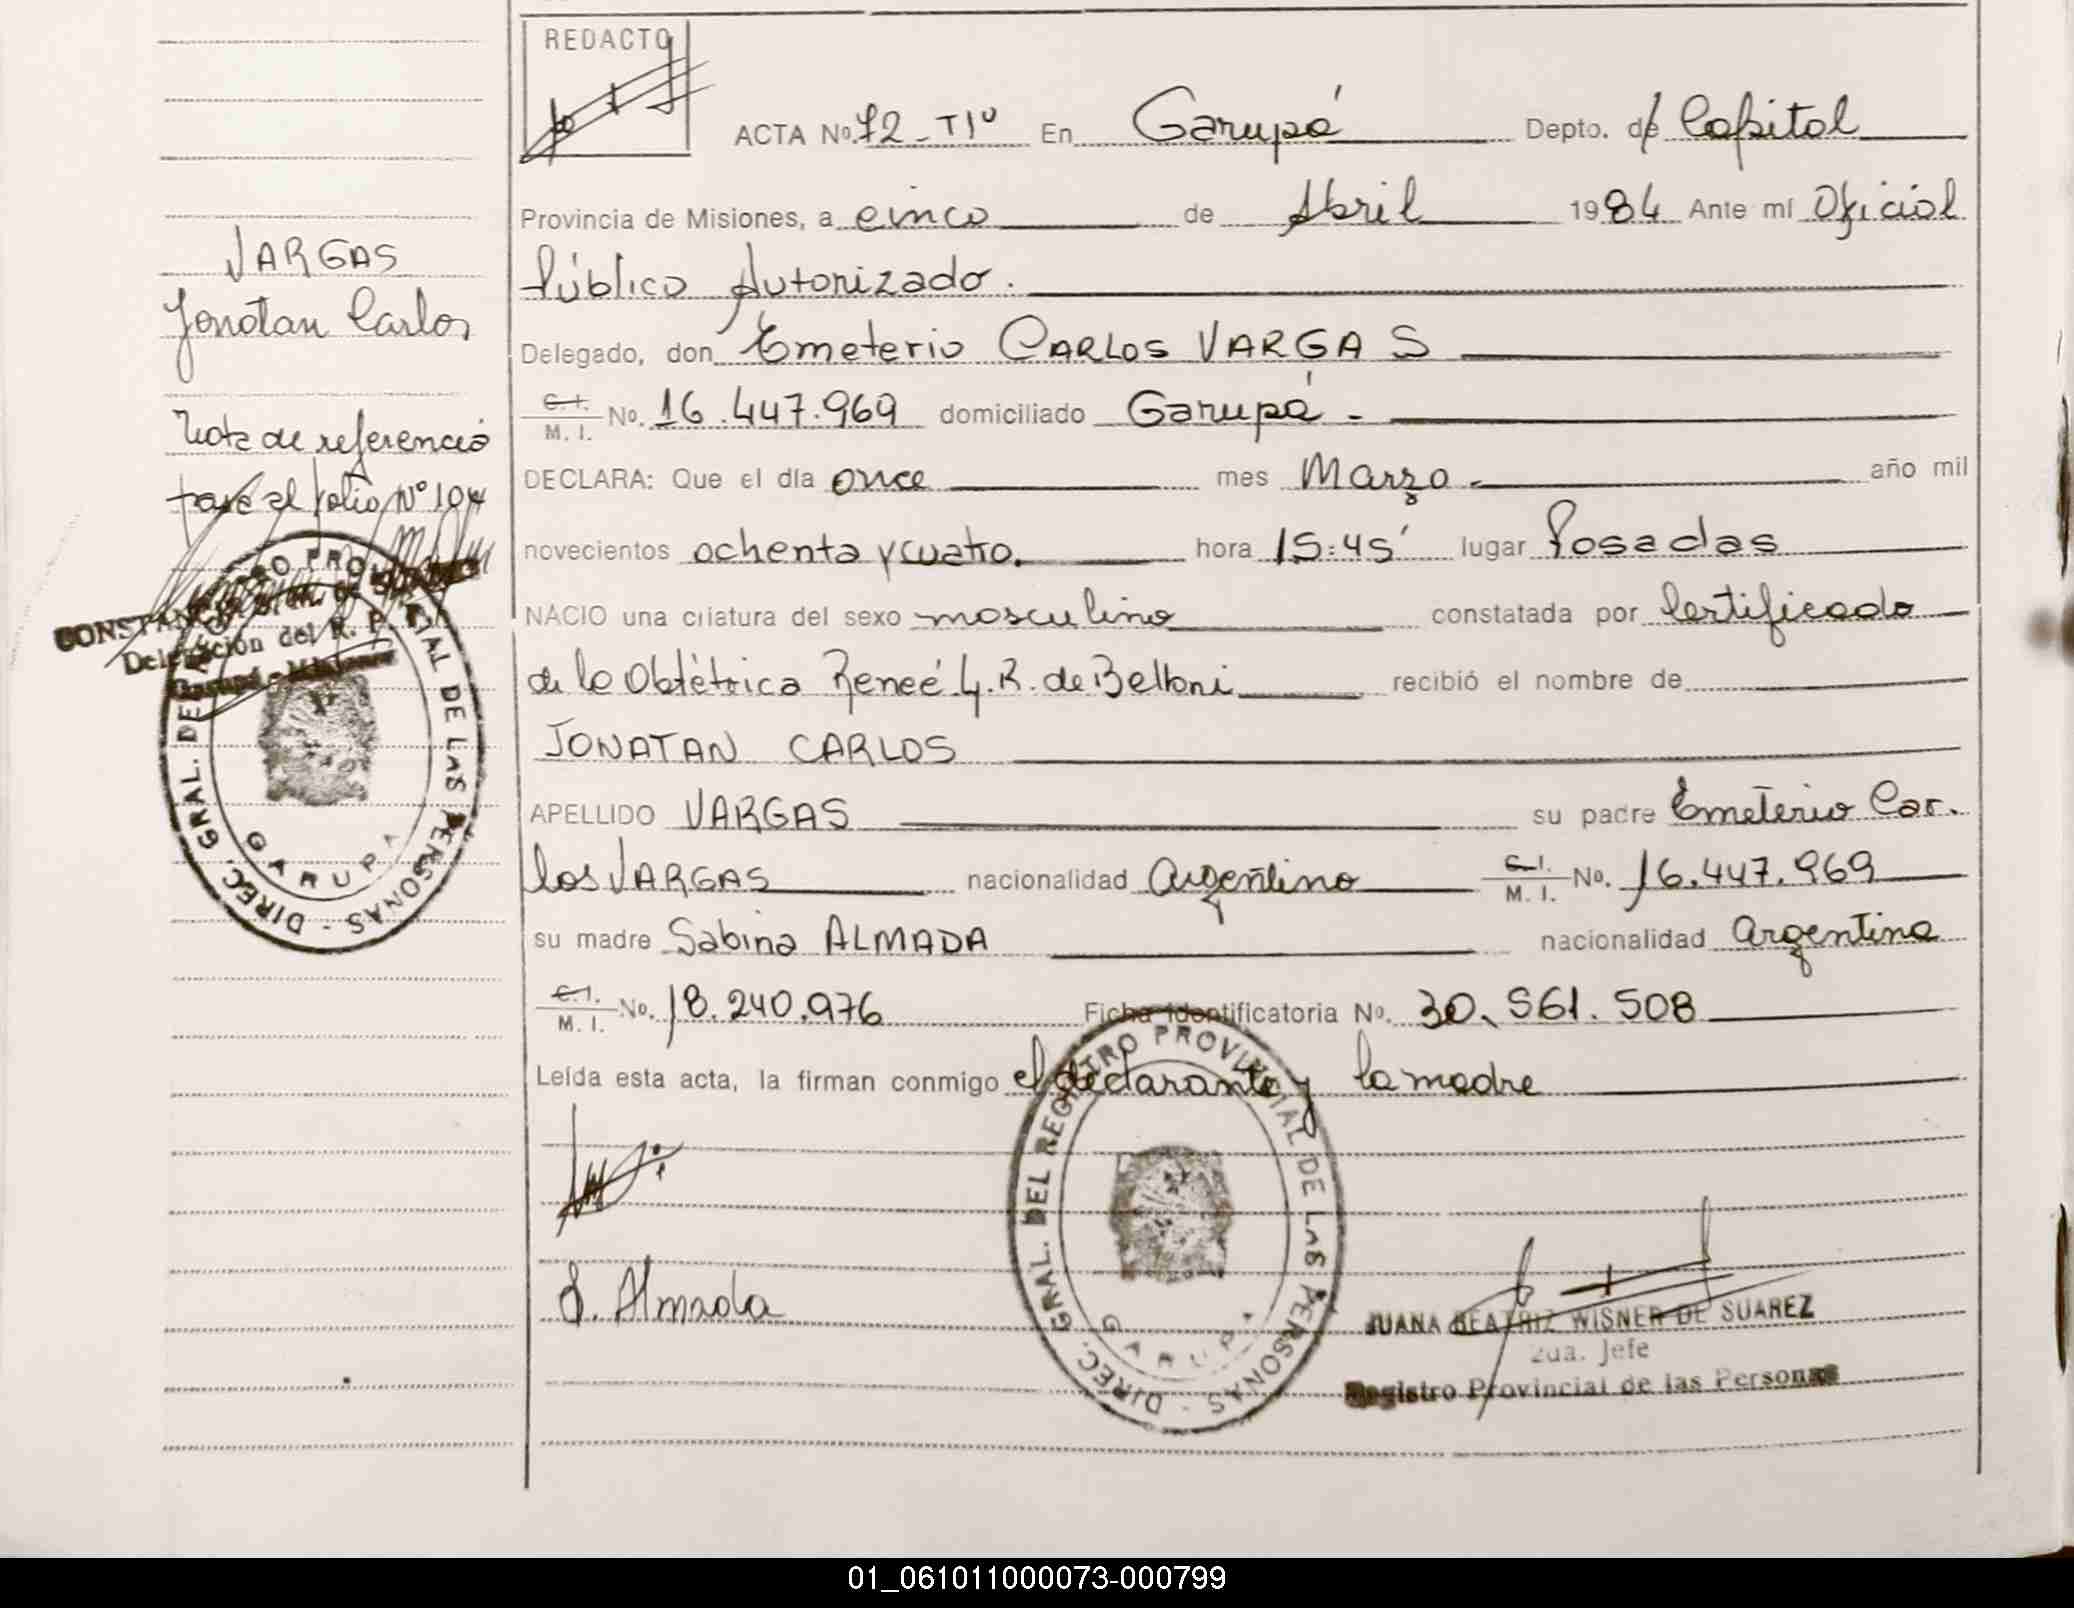 REDACTO
ACTA No. 72 - T1º En Garupá Depto. de Capital
Provincia de Misiones, a cinco de Abril 1984 Ante mí Oficial
Público Autorizado.
Delegado, don Emeterio CARLOS VARGAS
C.I. M. I. No. 16.447.969 domiciliado Garupá -
DECLARA: Que el día once mes Marzo año mil
novecientos ochenta y cuatro. hora 15:45' lugar Posadas
NACIO una criatura del sexo masculino constatada por Certificado
de la Obtétrica Reneé G.R. de Belloni recibió el nombre de
JONATAN CARLOS
APELLIDO VARGAS su padre Emeterio Car.
los VARGAS nacionalidad Argentino C.I. M. I. No. 16.447.969
su madre Sabina ALMADA nacionalidad Argentina
C.I. M. I. No. 18.240.976 Ficha Identificatoria No. 30.561.508
Leída esta acta, la firman conmigo el declarante y la madre
S. Almada
DIREC. GRAL. DEL REGISTRO PROVINCIAL DE LAS PERSONAS -
GARUPA
JUANA BEATRIZ WISNER DE SUAREZ
2da. Jefe
Registro Provincial de las Personas
VARGAS
Jonatan Carlos
Nota de referencia
pase al folio Nº 104
Delegación del R. P. P.
Garupá - Misiones
DIREC. GRAL. DEL REGISTRO PROVINCIAL DE LAS PERSONAS -
GARUPA
01_061011000073-000799